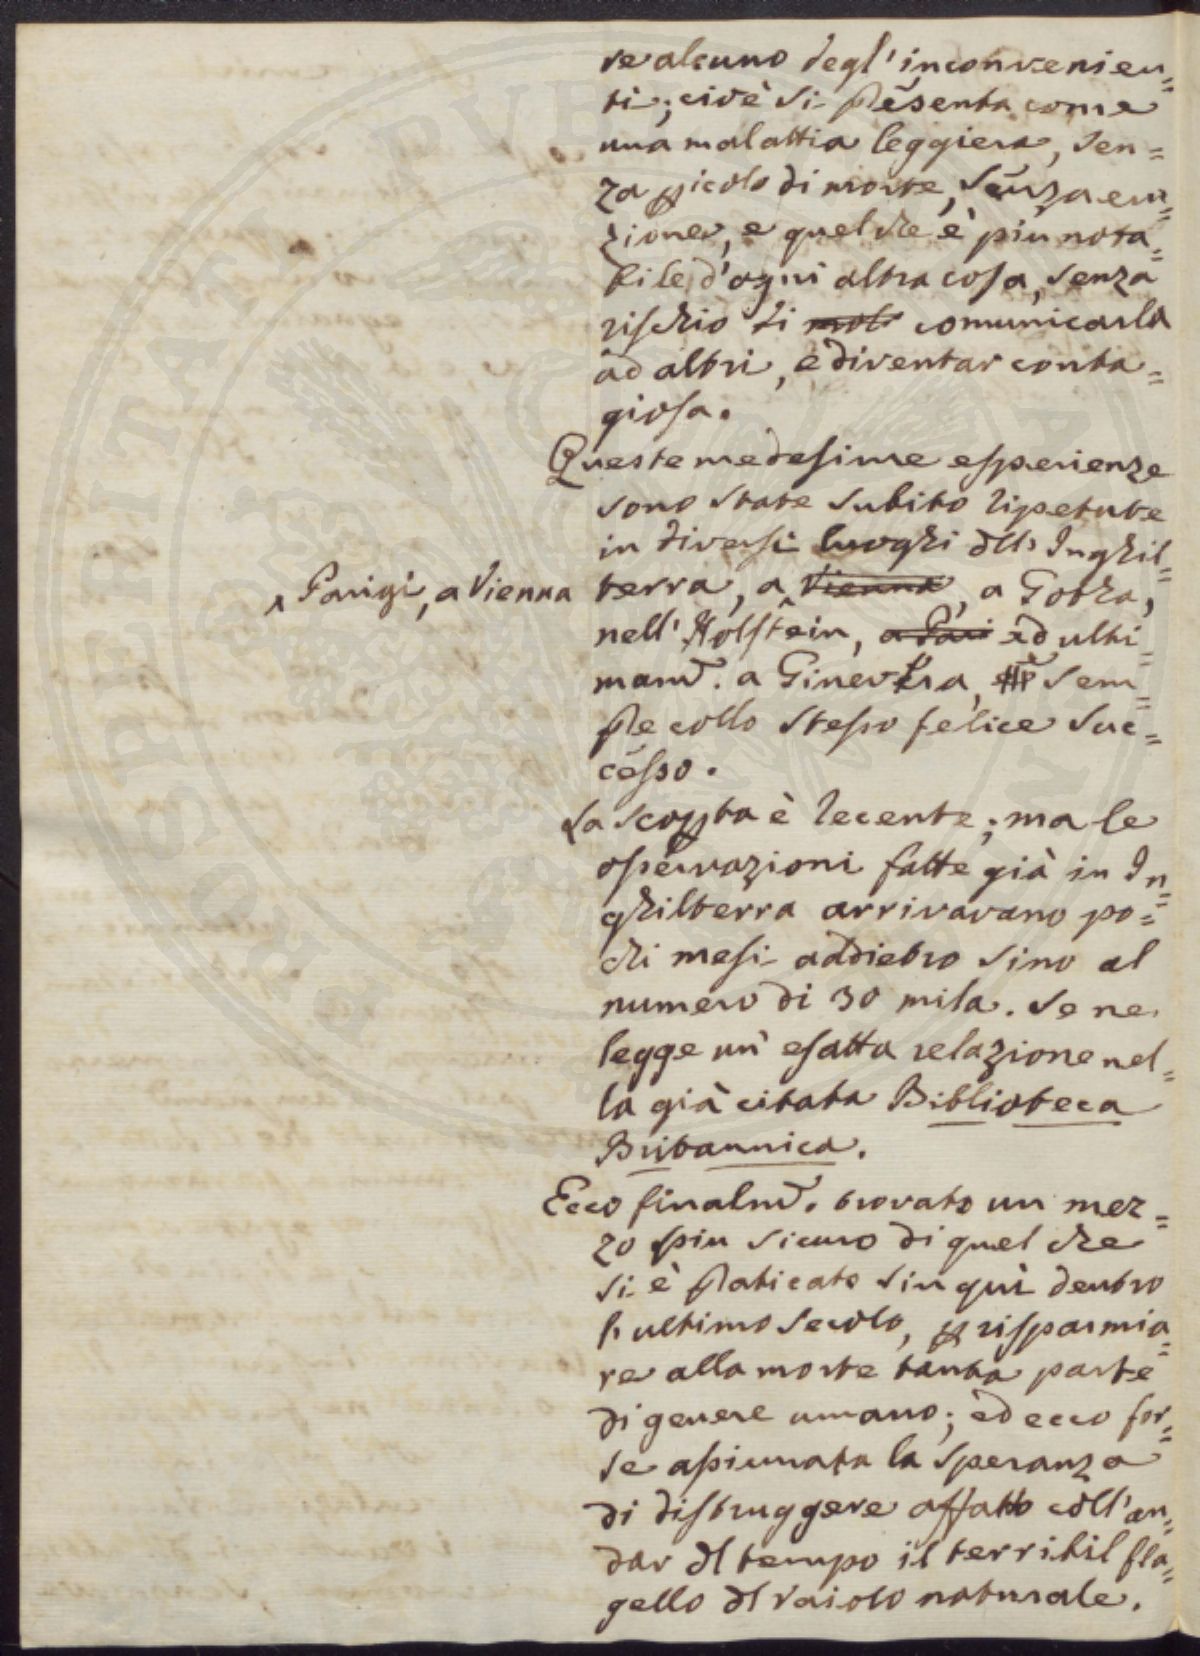 re alcuno degl'inconvenien=
ti; cioè si p̃esenta come
una malattia leggiera, sen=
za ꝑicolo di morte, senza eru=
zione, e quel che è più nota=
bile d'ogni altra cosa, senza
rischio di comunicarla
ad altri, e diventar conta=
giosa.
Queste medesime esperienze
sono state subito ripetute
in diversi luoghi dell'Inghil=
^ Parigi, a Vienna
terra, a Vienna, a Gotha,
nell'Holstein, a Pari ed ulti=
mam̃. a Ginevra, sem=
p̃e collo stesso felice suc=
cesso.
La scoꝑta è recente; ma le
osservazioni fatte già in In=
ghilterra arrivavano po=
chi mesi addietro sino al
numero di 30 mila. Se ne
legge un'esatta relazione nel=
la già citata Biblioteca
Britannica.
Ecco finalm̃. trovato un mez=
zo più sicuro di quel che
si è p̃aticato sin quì dentro
l'ultimo secolo, ꝑ risparmia=
re alla morte tanta parte
di genere umano; ed ecco for=
se assicurata la speranza
di distruggere affatto coll'an=
dar dl tempo il terribil fla=
gello dl vaiolo naturale.